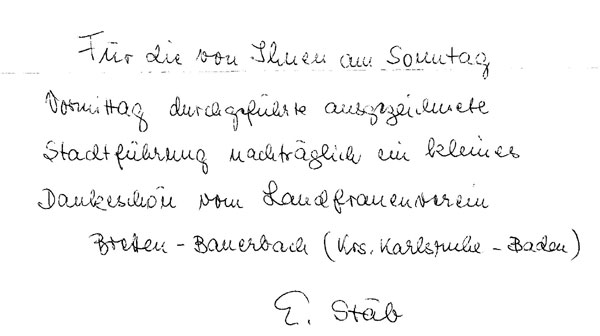 Für die von Ihnen am Sonntag
Vormittag durchgeführte ausgezeichnete
Stadtführung nachträglich ein kleines
Dankeschön vom Landfrauenverein
Bretten - Bauerbach (Krs. Karlsruhe - Baden)
E. Stäb